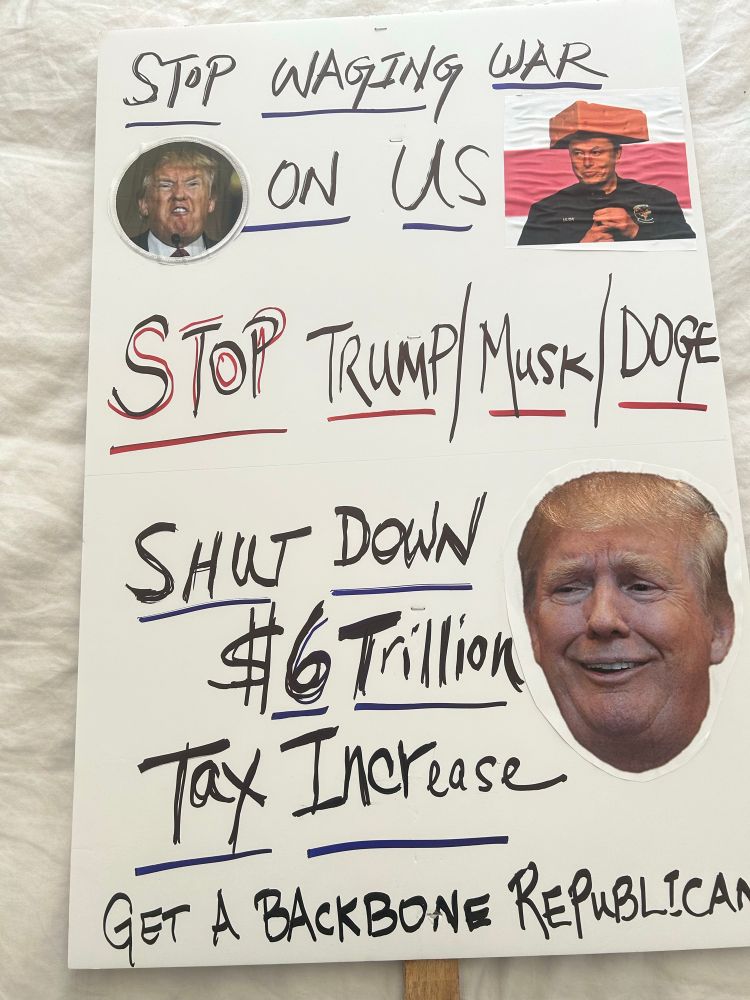 STOP WAGING WAR
ON US
STOP TRUMP/MUSK/DOGE
SHUT DOWN
$6 Trillion
Tax Increase
GET A BACKBONE REPUBLICAN